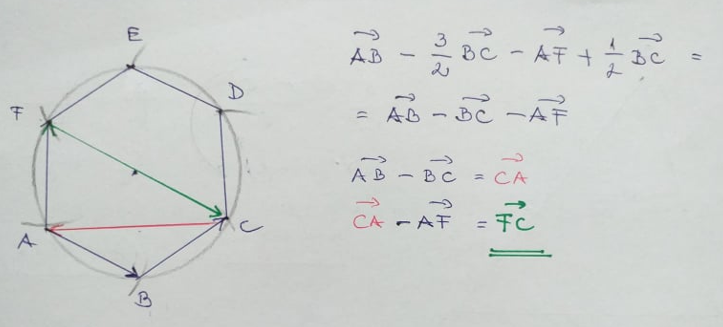 E
D
F
C
A
B
AB⃗ - 3/2 BC⃗ - AF⃗ + 1/2 BC⃗ =
= AB⃗ - BC⃗ - AF⃗
AB⃗ - BC⃗ = CA⃗
CA⃗ - AF⃗ = FC⃗